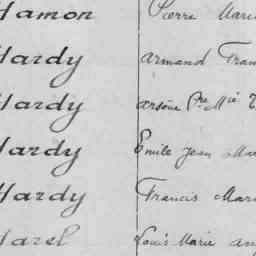 Hamon Pierre Marie
Hardy Armand Fran
Hardy arsène Pre Mie
Hardy Emile Jean Mar
Hardy Francis Mari
Harel Louis Marie ang